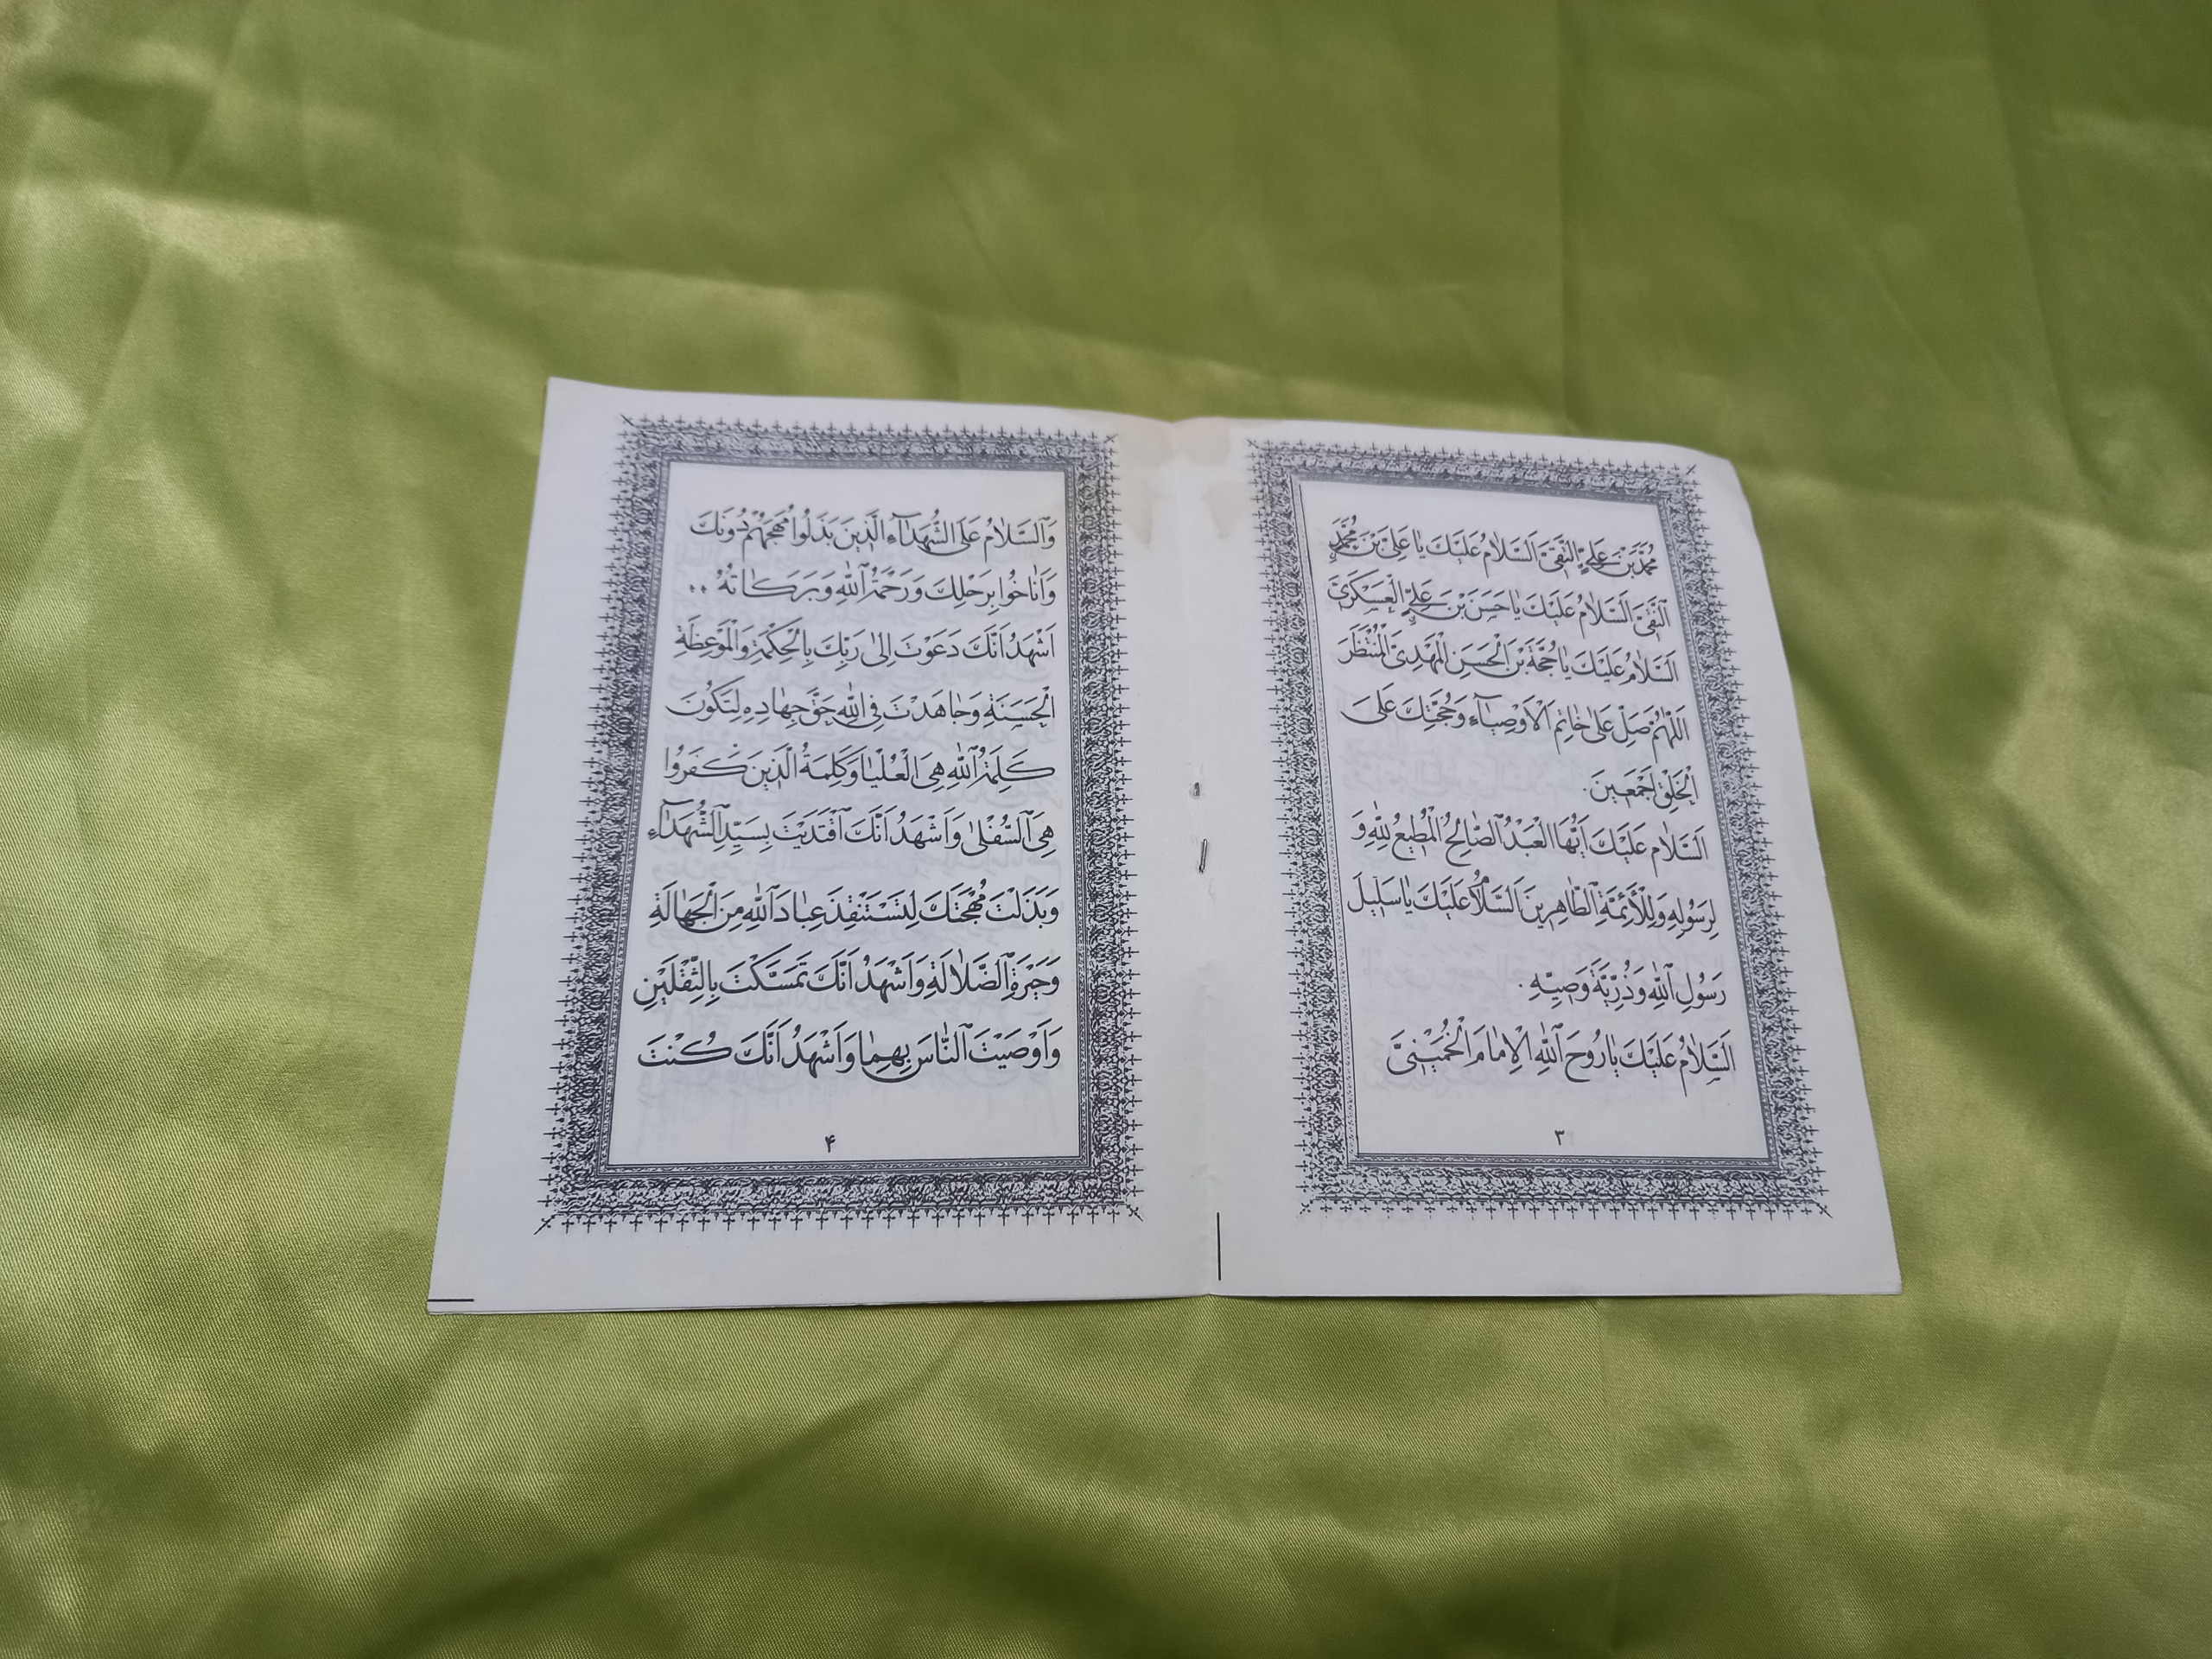 مُحَمَّدَ بْنَ عَلِيٍّ التَّقِيَّ اَلسَّلٰامُ عَلَيْكَ يٰا عَلِيَّ بْنَ مُحَمَّدٍ
اَلنَّقِيَّ اَلسَّلٰامُ عَلَيْكَ يٰا حَسَنَ بْنَ عَلِيٍّ الْعَسْكَرِيَّ
اَلسَّلٰامُ عَلَيْكَ يٰا حُجَّةَ بْنَ الْحَسَنِ الْمَهْدِيَّ الْمُنْتَظَرَ
اَللّٰهُمَّ صَلِّ عَلىٰ خٰاتِمِ اَلْاَوْصِيٰآءِ وَحُجَّتِكَ عَلَى
الْخَلْقِ اَجْمَعينَ.
اَلسَّلٰامُ عَلَيْكَ اَيُّهَا الْعَبْدُ الصّٰالِحُ الْمُطيعُ لِلّٰهِ وَ
لِرَسُولِهِ وَلِلْأَئِمَّةِ الطّٰاهِرينَ اَلسَّلٰامُ عَلَيْكَ يٰا سَليلَ
رَسُولِ اللّٰهِ وَذُرِّيَّةَ وَصِيِّهِ.
اَلسَّلٰامُ عَلَيْكَ يٰا رُوحَ اللّٰهِ الْاِمٰامَ الْخُمَيْنِيَّ
۳
وَالسَّلٰامُ عَلَى الشُّهَدٰآءِ الَّذينَ بَذَلُوا مُهَجَهُمْ دُونَكَ
وَاَنٰاخُوا بِرَحْلِكَ وَرَحْمَةُ اللّٰهِ وَبَرَكٰاتُهُ..
اَشْهَدُ اَنَّكَ دَعَوْتَ اِلىٰ رَبِّكَ بِالْحِكْمَةِ وَالْمَوْعِظَةِ
الْحَسَنَةِ وَجٰاهَدْتَ فِي اللّٰهِ حَقَّ جِهٰادِهِ لِتَكُونَ
كَلِمَةُ اللّٰهِ هِيَ الْعُلْيٰا وَكَلِمَةُ الَّذينَ كَفَرُوا
هِيَ السُّفْلىٰ وَاَشْهَدُ اَنَّكَ اقْتَدَيْتَ بِسَيِّدِ الشُّهَدٰآءِ
وَبَذَلْتَ مُهْجَتَكَ لِتَسْتَنْقِذَ عِبٰادَ اللّٰهِ مِنَ الْجَهٰالَةِ
وَحَيْرَةِ الضَّلٰالَةِ وَاَشْهَدُ اَنَّكَ تَمَسَّكْتَ بِالثِّقْلَيْنِ
وَاَوْصَيْتَ النّٰاسَ بِهِمٰا وَاَشْهَدُ اَنَّكَ كُنْتَ
۴